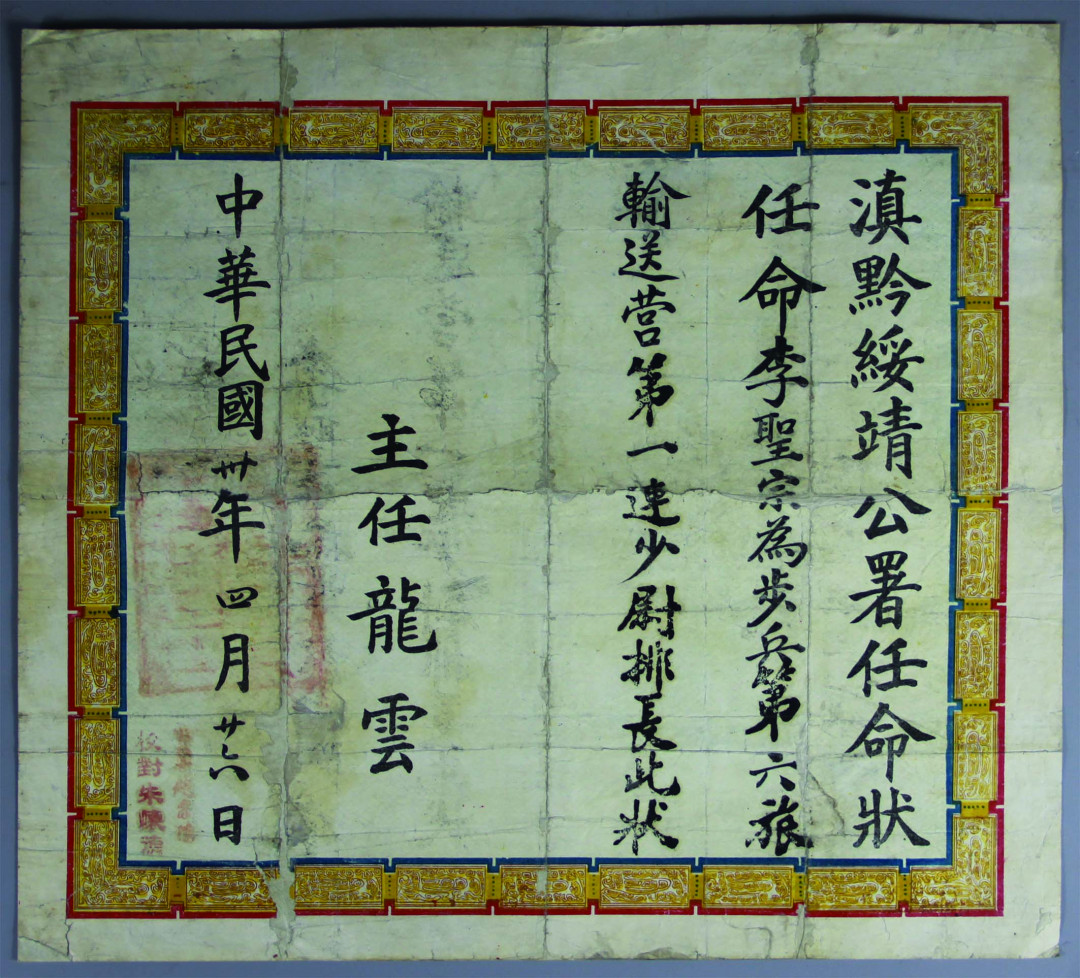 滇黔綏靖公署任命狀
任命李聖宗為步兵第六旅
輸送营第一連少尉排長此狀
主任龍雲
中華民國卅年四月廿六日
校對朱